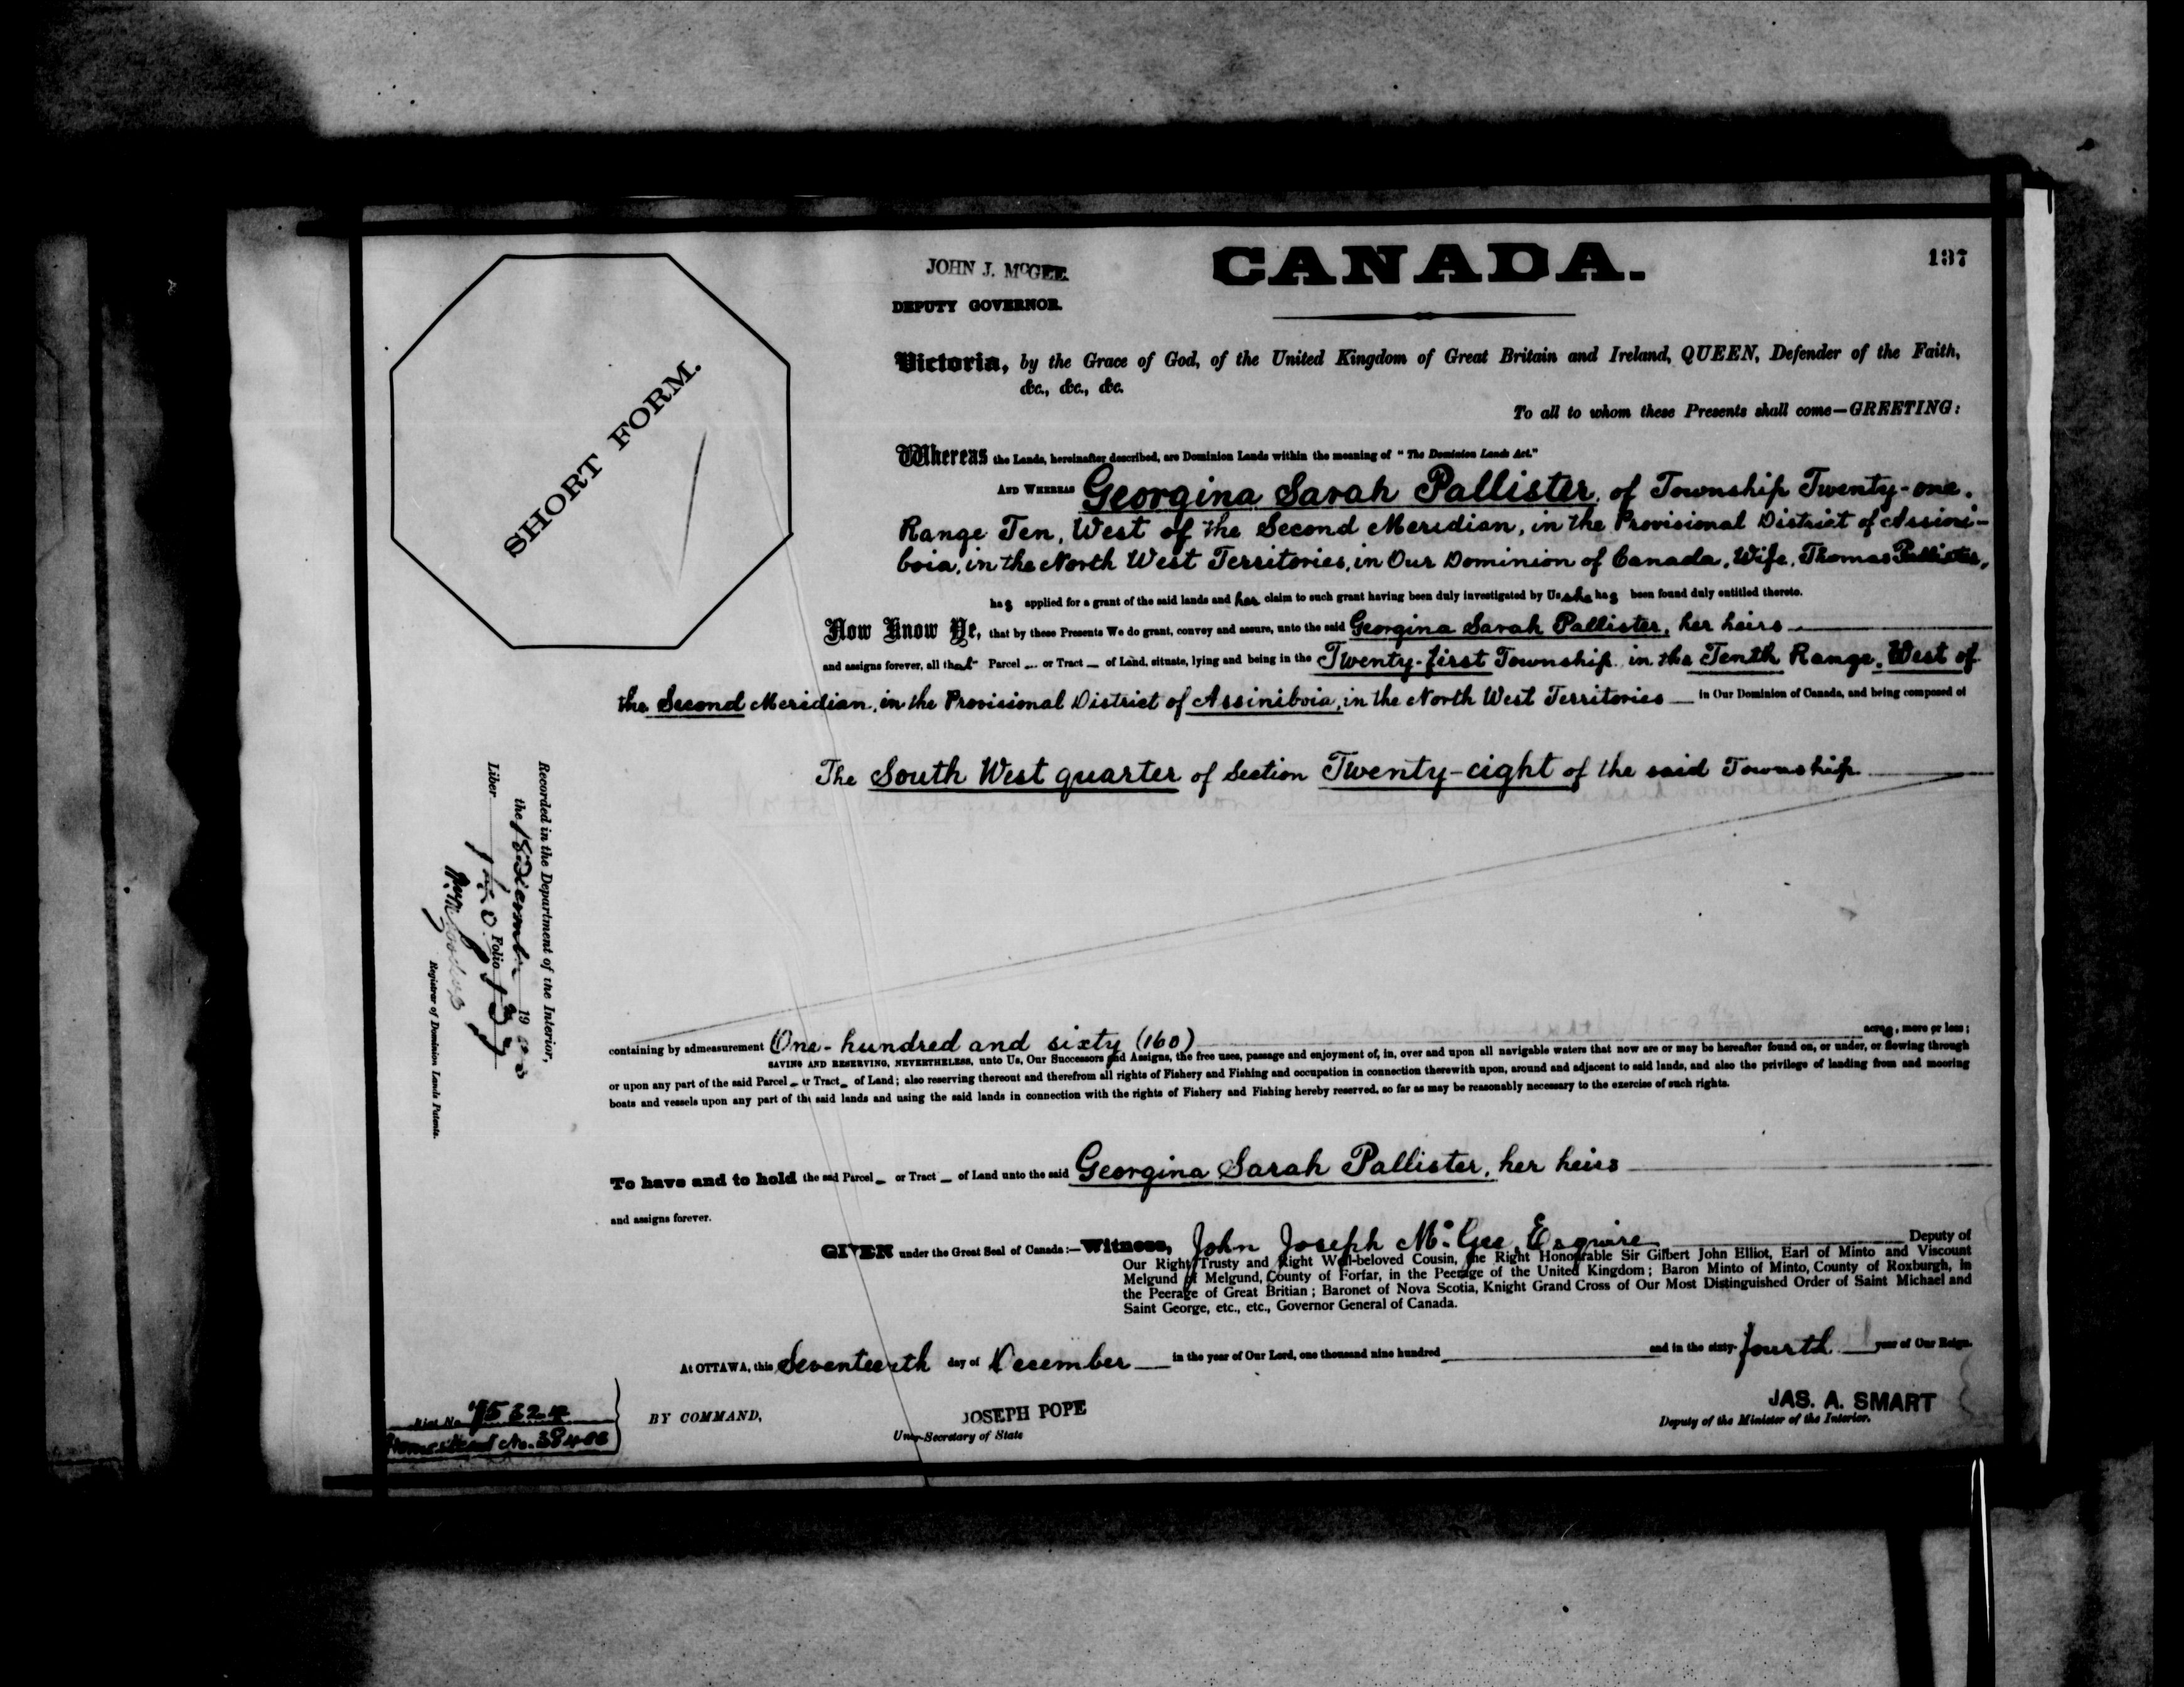 JOHN J. McGEE.
DEPUTY GOVERNOR.
CANADA.
137
SHORT FORM.
Victoria, by the Grace of God, of the United Kingdom of Great Britain and Ireland, QUEEN, Defender of the Faith,
&c., &c., &c.
To all to whom these Presents shall come—GREETING:
Whereas the Lands, hereinafter described, are Dominion Lands within the meaning of "The Dominion Lands Act."
AND WHEREAS Georgina Sarah Pallister, of Township Twenty-one,
Range Ten, West of the Second Meridian, in the Provisional District of Assini-
boia, in the North West Territories, in Our Dominion of Canada, Wife, Thomas Pallister,
has applied for a grant of the said lands and her claim to such grant having been duly investigated by Us she has been found duly entitled thereto.
Now Know Ye, that by these Presents We do grant, convey and assure, unto the said Georgina Sarah Pallister, her heirs
and assigns forever, all that Parcel or Tract of Land, situate, lying and being in the Twenty-first Township in the Tenth Range, West of
the Second Meridian, in the Provisional District of Assiniboia, in the North West Territories in Our Dominion of Canada, and being composed of
The South West quarter of Section Twenty-eight of the said Township
Recorded in the Department of the Interior,
the 18 December 19
Liber 150 Folio 137
Registrar of Dominion Lands Patents.
containing by admeasurement One-hundred and sixty (160) acres, more or less;
SAVING AND RESERVING, NEVERTHELESS, unto Us, Our Successors and Assigns, the free uses, passage and enjoyment of, in, over and upon all navigable waters that now are or may be hereafter found on, or under, or flowing through
or upon any part of the said Parcel or Tract of Land; also reserving thereout and therefrom all rights of Fishery and Fishing and occupation in connection therewith upon, around and adjacent to said lands, and also the privilege of landing from and mooring
boats and vessels upon any part of the said lands and using the said lands in connection with the rights of Fishery and Fishing hereby reserved, so far as may be reasonably necessary to the exercise of such rights.
To have and to hold the said Parcel or Tract of Land unto the said Georgina Sarah Pallister, her heirs
and assigns forever.
GIVEN under the Great Seal of Canada:—Witness, John Joseph McGee Esquire Deputy of
Our Right Trusty and Right Well-beloved Cousin, the Right Honourable Sir Gilbert John Elliot, Earl of Minto and Viscount
Melgund of Melgund, County of Forfar, in the Peerage of the United Kingdom; Baron Minto of Minto, County of Roxburgh, in
the Peerage of Great Britian; Baronet of Nova Scotia, Knight Grand Cross of Our Most Distinguished Order of Saint Michael and
Saint George, etc., etc., Governor General of Canada.
At OTTAWA, this Seventeenth day of December in the year of Our Lord, one thousand nine hundred and in the sixty-fourth year of Our Reign.
BY COMMAND,
JOSEPH POPE
Under-Secretary of State
JAS. A. SMART
Deputy of the Minister of the Interior.
Homestead No.